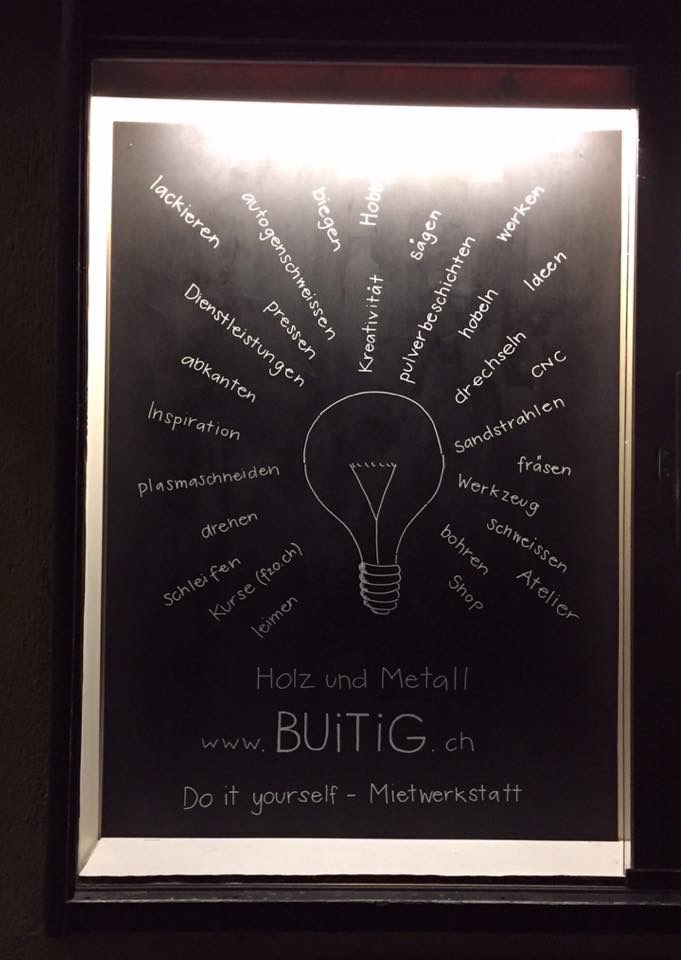 lackieren
autogenschweissen
biegen
sägen
werken
Ideen
Dienstleistungen
pressen
Kreativität
pulverbeschichten
hobeln
drechseln
CNC
abkanten
Inspiration
Sandstrahlen
fräsen
plasmaschneiden
Werkzeug
drehen
schweissen
bohren
schleifen
Kurse (fzo.ch)
Atelier
leimen
Shop
Holz und Metall
www.BUiTiG.ch
Do it yourself - Mietwerkstatt